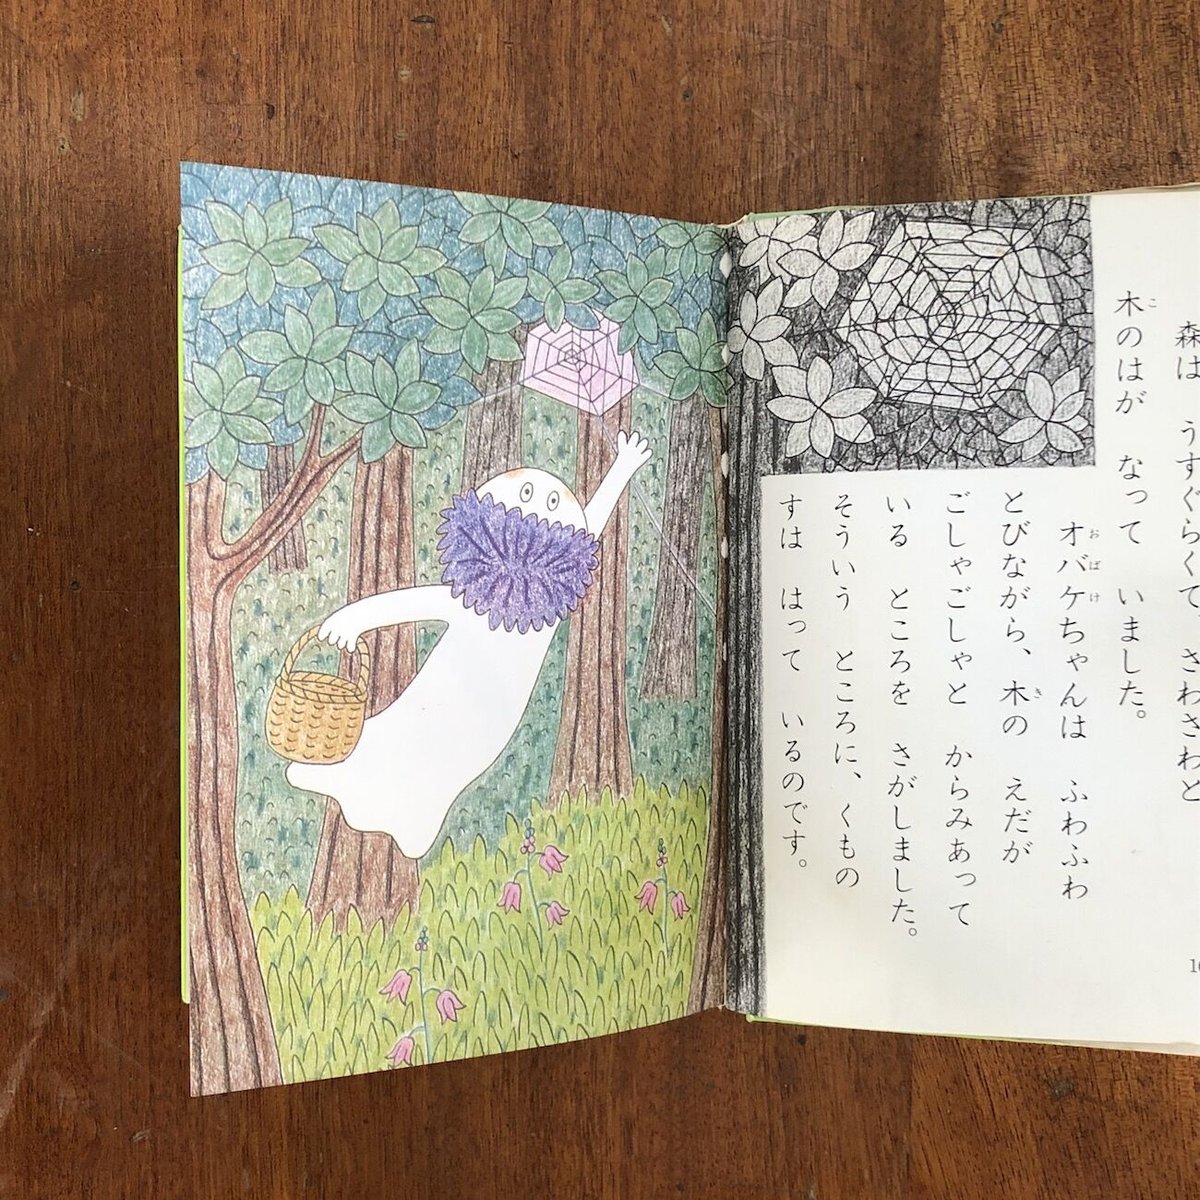 森は うすぐらくて さわさわと
木のはが なって いました。
オバケちゃんは ふわふわ
とびながら、木の えだが
ごしゃごしゃと からみあって
いる ところを さがしました。
そういう ところに、くもの
すは はって いるのです。